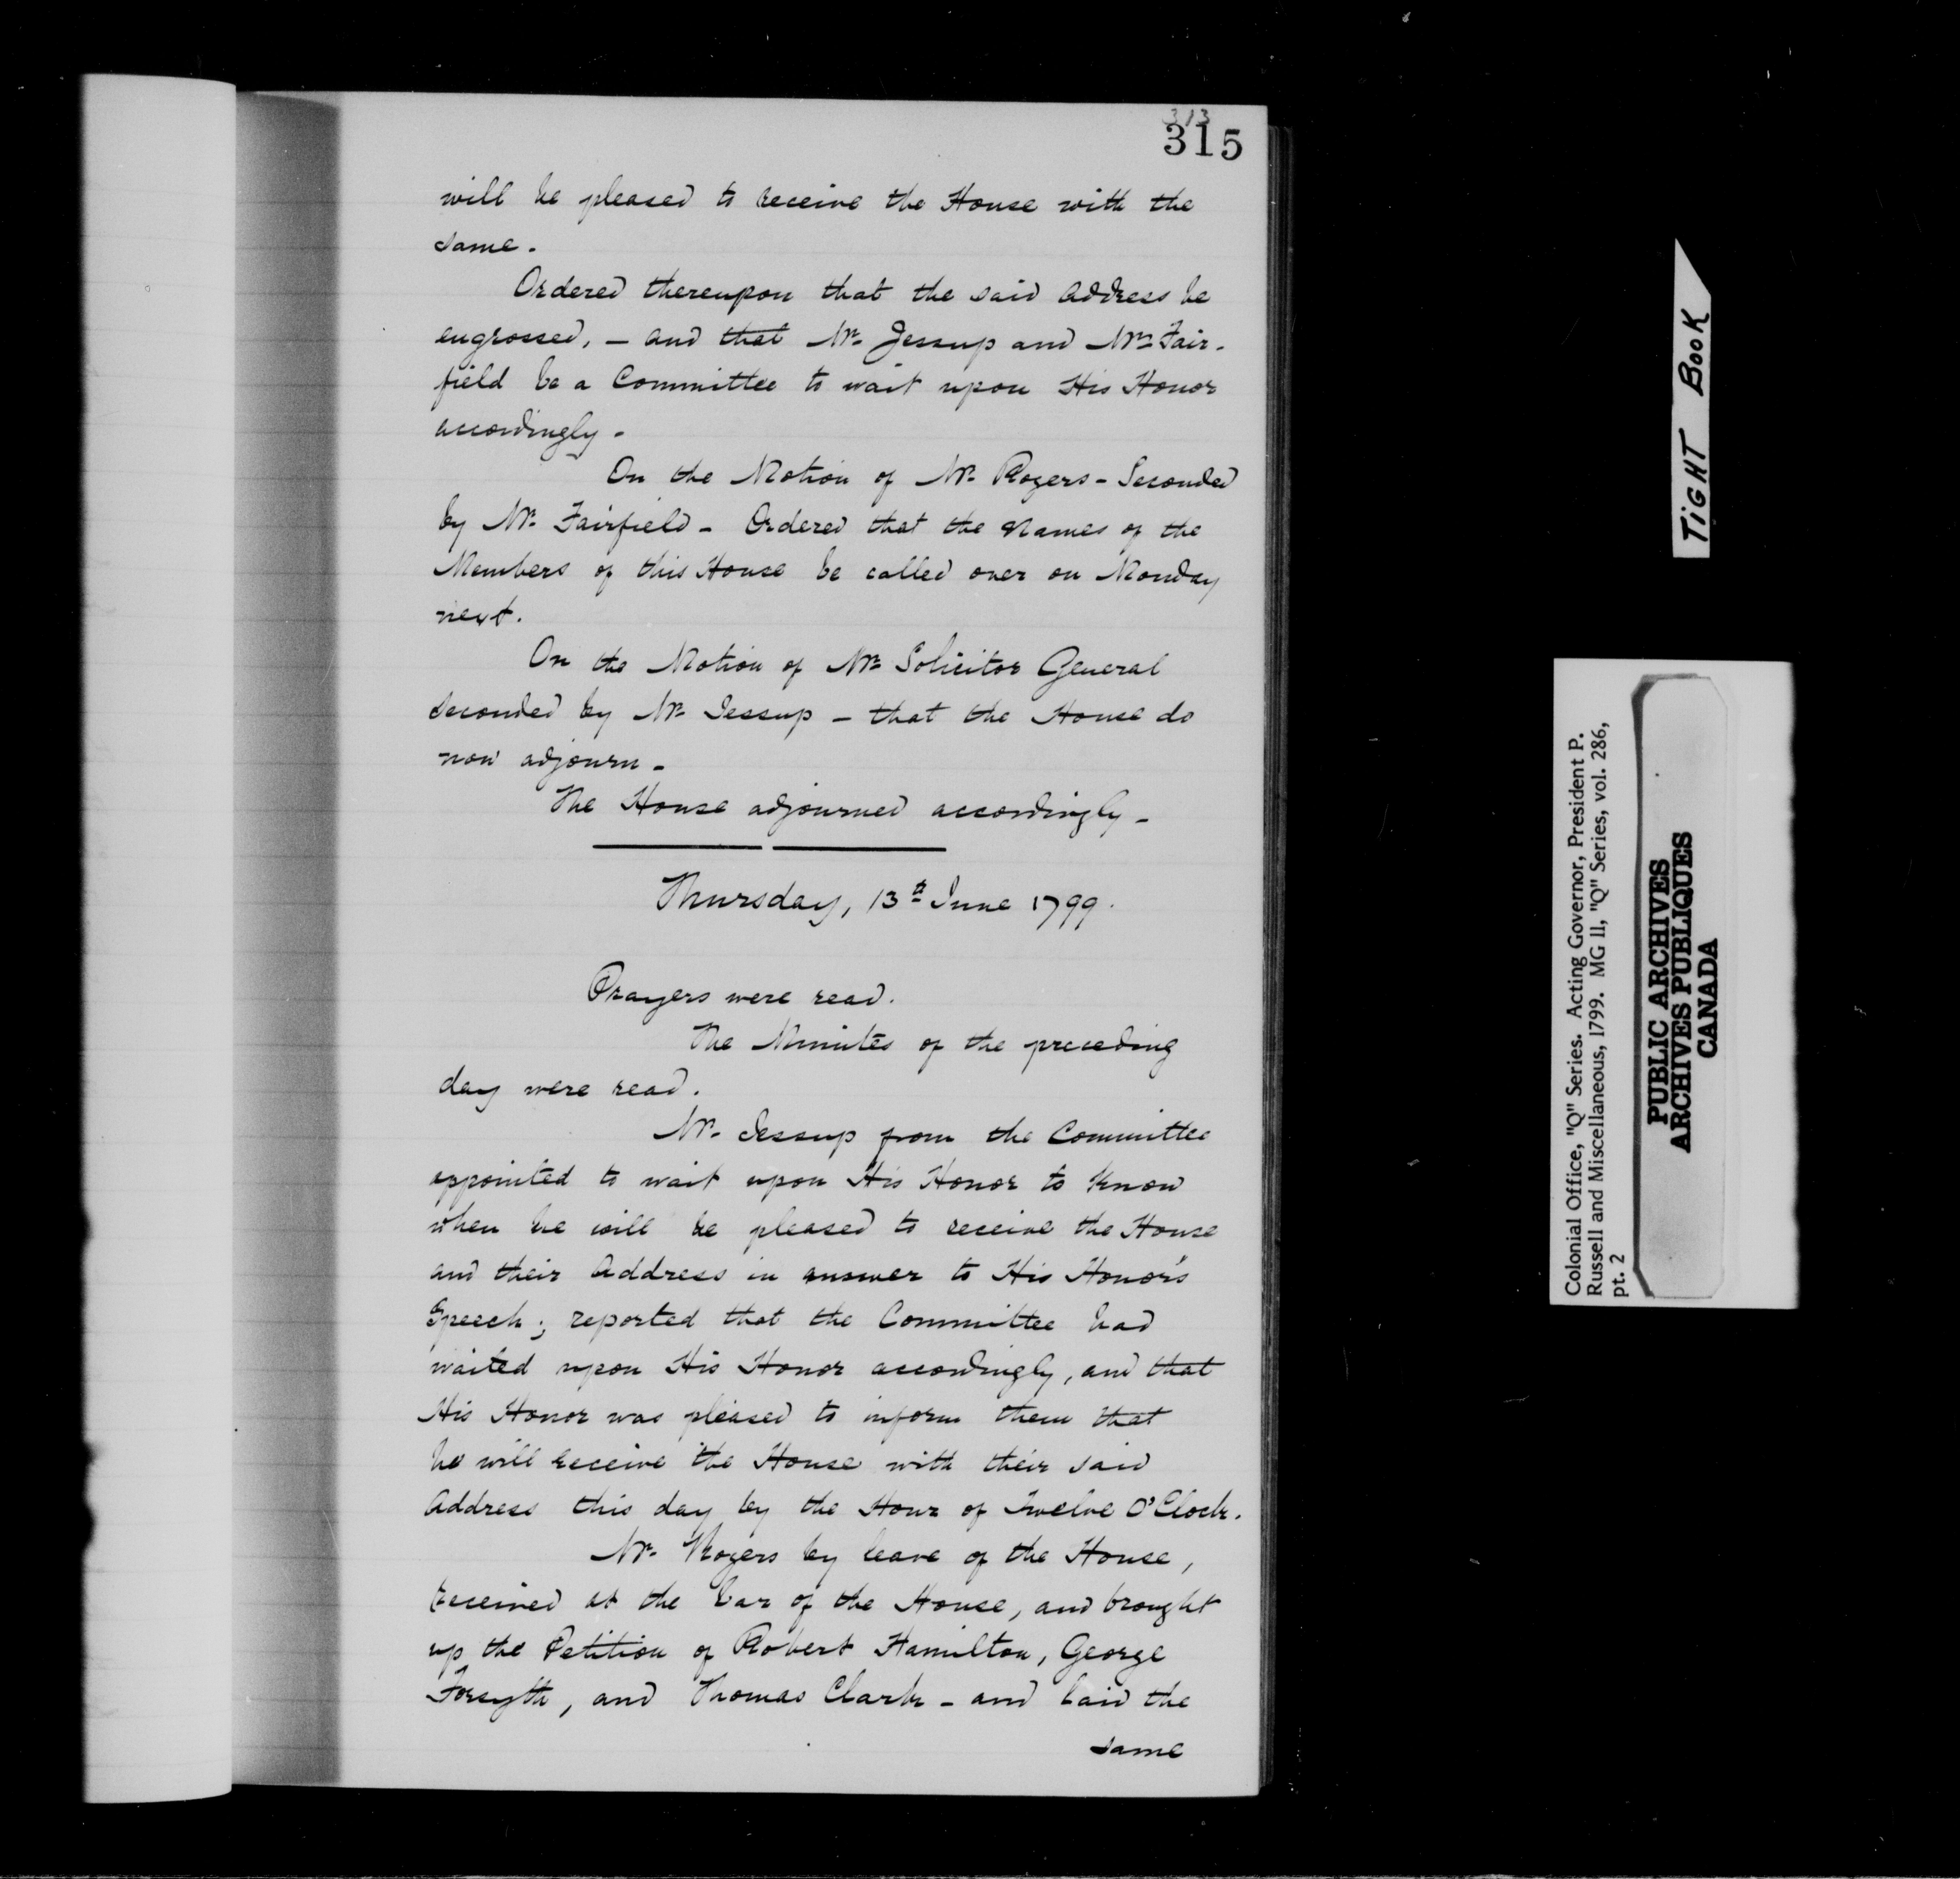 313
315
will be pleased to receive the House with the
same.
Ordered thereupon that the said Address be
engrossed, – and that Mr. Jessup and Mr. Fair-
field be a Committee to wait upon His Honor
accordingly.
On the Motion of Mr. Rogers – Seconded
by Mr. Fairfield – Ordered that the Names of the
Members of this House be called over on Monday
next.
On the Motion of Mr. Solicitor General
seconded by Mr. Jessup – that the House do
now adjourn –
The House adjourned accordingly –
Thursday, 13th June 1799.
Prayers were read.
The Minutes of the preceding
day were read.
Mr. Jessup from the Committee
appointed to wait upon His Honor to know
when he will be pleased to receive the House
and their Address in answer to His Honor's
Speech; reported that the Committee had
waited upon His Honor accordingly, and that
His Honor was pleased to inform them that
he will receive the House with their said
Address this day by the Hour of Twelve O'Clock.
Mr. Rogers by leave of the House,
received at the bar of the House, and brought
up the Petition of Robert Hamilton, George
Forsyth, and Thomas Clark – and laid the
same
TIGHT BOOK
Colonial Office, "Q" Series. Acting Governor, President P.
Russell and Miscellaneous, 1799. MG 11, "Q" Series, vol. 286,
pt. 2
PUBLIC ARCHIVES
ARCHIVES PUBLIQUES
CANADA